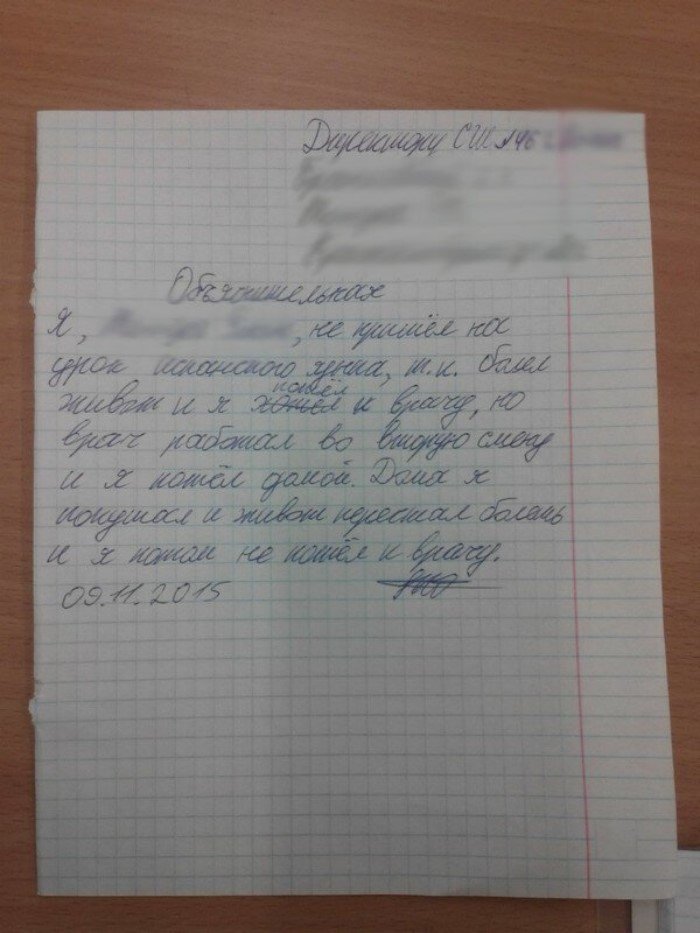 Директору СШ №46
Объяснительная
Я, не пришёл на
урок испанского языка, т.к. болел
живот и я пошёл к врачу, но
врач работал во вторую смену
и я пошёл домой. Дома я
покушал и живот перестал болеть
и я потом не пошёл к врачу.
09.11.2015